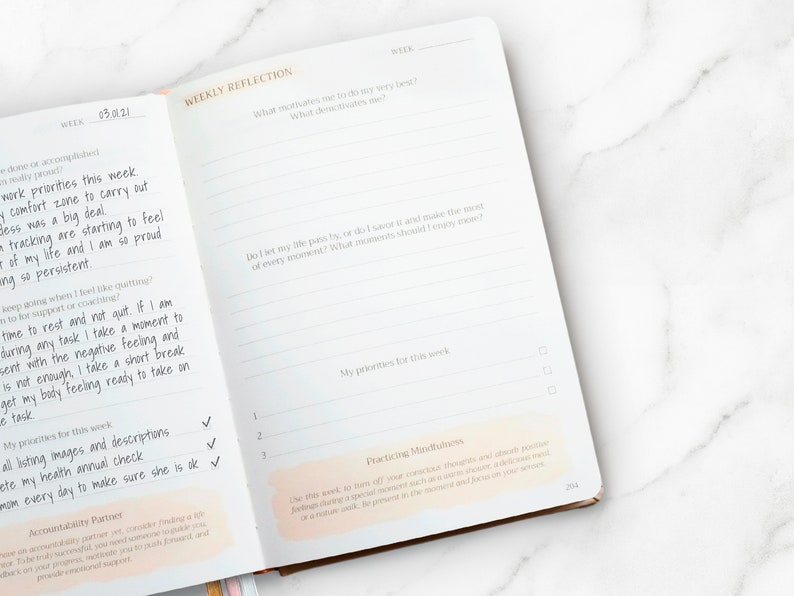 WEEK 03.01.21
e done or accomplished
m really proud?
work priorities this week.
y comfort zone to carry out
dess was a big deal.
tracking are starting to feel
t of my life and I am so proud
ing so persistent.
keep going when I feel like quitting?
n to for support or coaching?
time to rest and not quit. If I am
during any task I take a moment to
sent with the negative feeling and
is not enough, I take a short break
get my body feeling ready to take on
e task.
My priorities for this week
all listing images and descriptions ✓
ete my health annual check ✓
mom every day to make sure she is ok ✓
Accountability Partner
have an accountability partner yet, consider finding a life
ntor. To be truly successful, you need someone to guide you,
dback on your progress, motivate you to push forward, and
provide emotional support.
WEEK
WEEKLY REFLECTION
What motivates me to do my very best?
What demotivates me?
Do I let my life pass by, or do I savor it and make the most
of every moment? What moments should I enjoy more?
My priorities for this week
1
2
3
Practicing Mindfulness
Use this week to turn off your conscious thoughts and absorb positive
feelings during a special moment such as a warm shower, a delicious meal,
or a nature walk. Be present in the moment and focus on your senses.
204